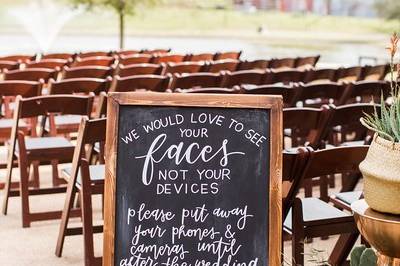 WE WOULD LOVE TO SEE
YOUR
faces
NOT YOUR
DEVICES
please put away
your phones &
cameras until
after the wedding